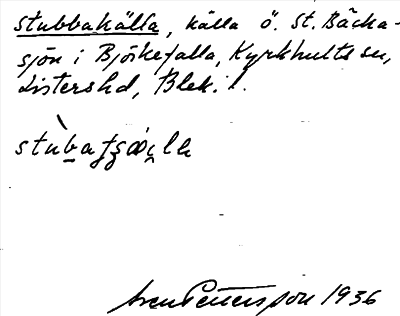 Stubbakälla, källa ö. St. Bäcka-
sjön i Björkefalla, Kyrkhults sn,
Listers hd, Blek. l.
Sven Pettersson 1936